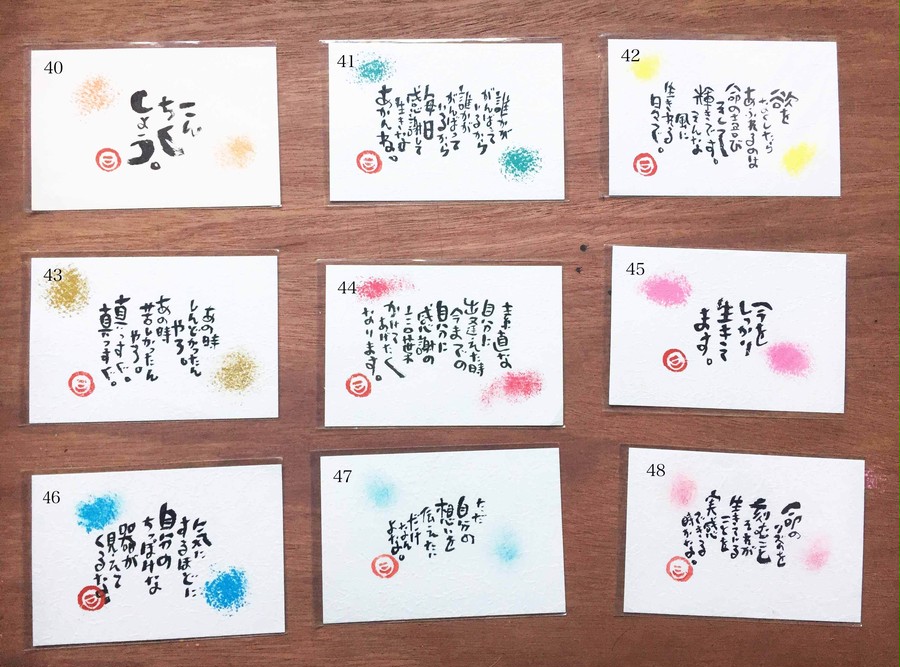 40
こん
ちく
しょう。
41
誰かが
がんばって
いるから
誰かが
がんばって
いるから
毎日
感謝して
生きな
あかんね。
42
欲を
なくしたら
あふれるのは
命の喜び
そして
輝きです。
そんな
風に
生きれる
日々で。
43
あの時
しんどかったん
やろ。
あの時
苦しかったん
やろ。
真っすぐ。
真っすぐ。
44
素直な
自分に
出逢えた時
今までの
自分に
感謝の
言葉
かけて
あげたく
なります。
45
今を
しっかり
生きて
ます。
46
気に
するほどに
自分の
ちっぽけな
器が
見えて
くるなぁ。
47
ただ
自分の
想いを
伝えたい
だけ
なん
よな。
48
命の
リズムを
刻むこと
それが
生きている
ことを
実感
できる
時かな。